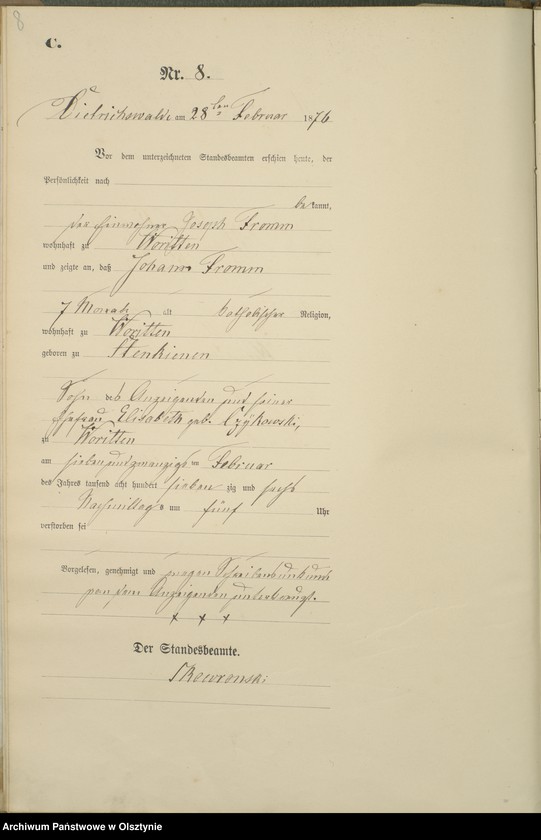 8
C.
Nr. 8.
Dietrichswalde am 28ten Februar 1876
Vor dem unterzeichneten Standesbeamten erschien heute, der
Persönlichkeit nach
bekannt,
der Einwohner Joseph Fromm
wohnhaft zu Woritten
und zeigte an, daß Johann Fromm
7 Monate alt katholischer Religion,
wohnhaft zu Woritten
geboren zu Stenkienen
Sohn des Anzeigenden und seiner
Ehefrau Elisabeth geb. Czykowski,
zu Woritten
am siebenundzwanzigsten Februar
des Jahres tausend acht hundert siebenzig und sechs
Nachmittags um fünf Uhr
verstorben sei
Vorgelesen, genehmigt und wegen Schreibensunkunde
von dem Anzeigenden unterkreuzt.
+ + +
Der Standesbeamte.
Skowronski
Archiwum Państwowe w Olsztynie